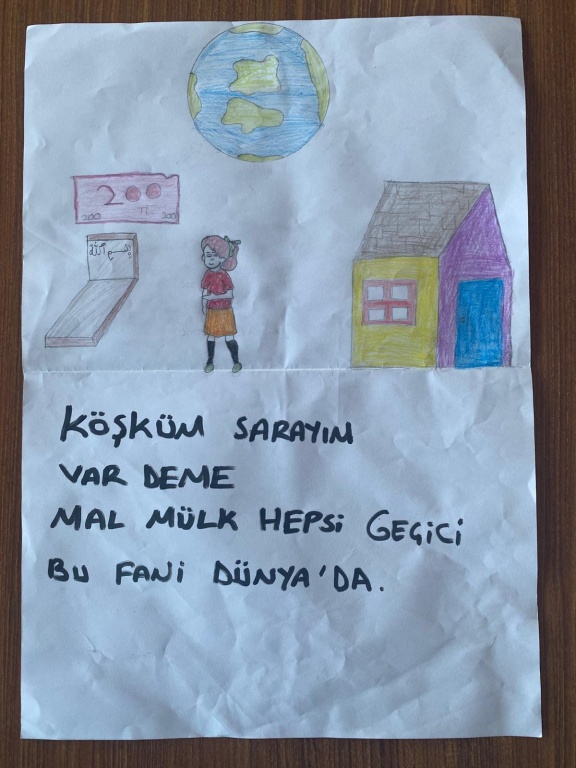 200
200 TL 200
بسم الله
KÖŞKÜM SARAYIM
VAR DEME
MAL MÜLK HEPSİ GEÇİCİ
BU FANİ DÜNYA'DA.